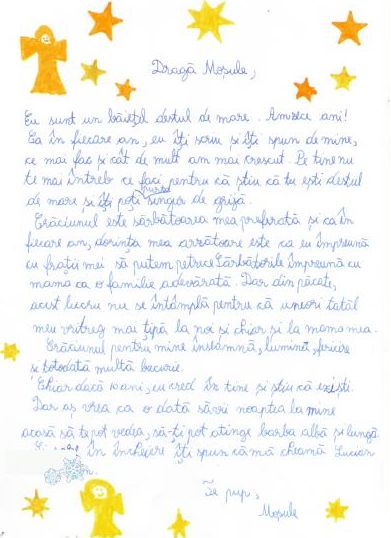 Dragă Moșule,
Eu sunt un băiețel destul de mare. Am zece ani!
Ca în fiecare an, eu îți scriu și îți spun de mine,
ce mai fac și cât de mult am mai crescut. Pe tine nu
te mai întreb ce faci pentru că știu că tu ești destul
de mare și îți poți purta singur de grijă.
Crăciunul este sărbătoarea mea preferată și ca în
fiecare an, dorința mea arzătoare este ca eu împreună
cu frații mei să putem petrece Sărbătorile împreună cu
mama ca o familie adevărată. Dar din păcate,
acest lucru nu se întâmplă pentru că uneori tatăl
meu vitreg mai țipă la noi și chiar și la mama mea.
Crăciunul pentru mine înseamnă, lumină, fericire
și totodată multă bucurie.
Chiar dacă 10 ani, eu cred în tine și știu că exiști.
Dar aș vrea ca o dată să vii noaptea la mine
acasă să te pot vedea, să-ți pot atinge barba albă și lungă
În încheiere îți spun că mă cheamă Lucian
Te pup,
Moșule